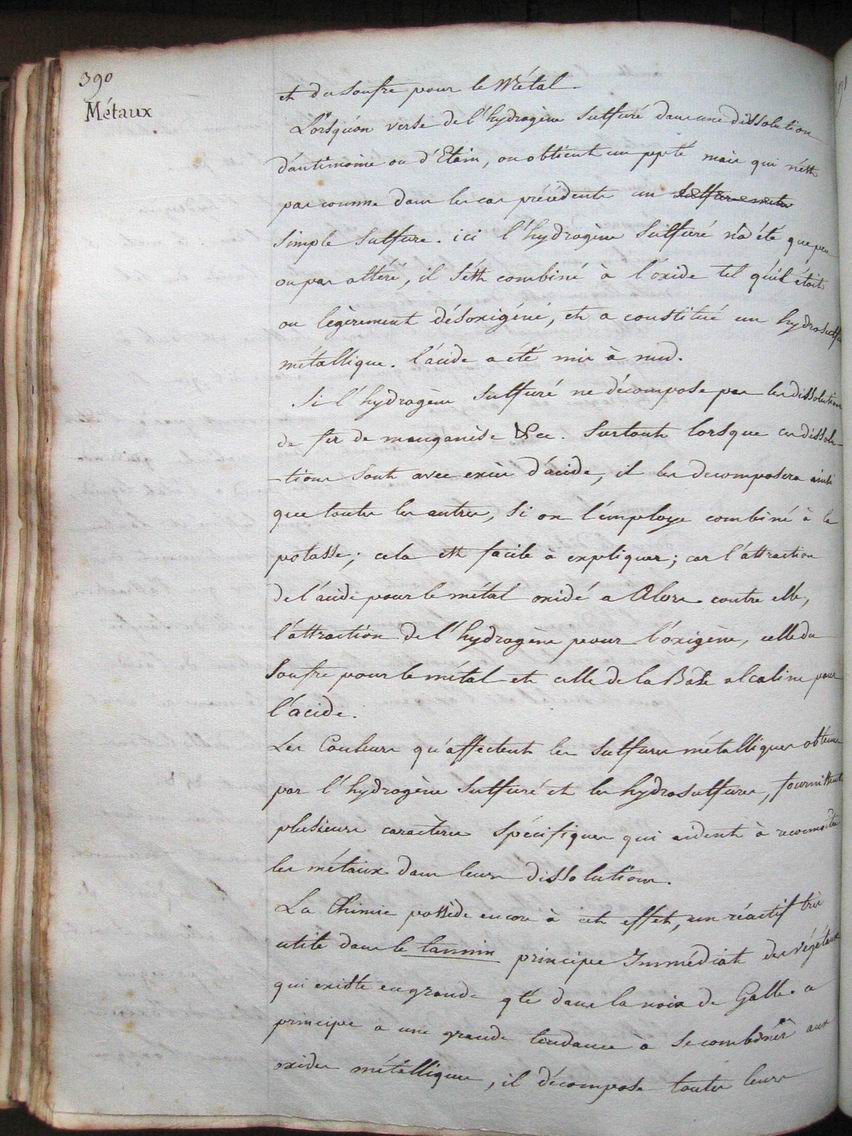 390
Métaux
et du soufre pour le Métal.
Lorsqu'on verse de l'hydrogène sulfuré dans une dissolution
d'antimoine ou d'Etain, on obtient un ppté mais qui n'est
pas comme dans les cas précédents un
simple sulfure. ici l'hydrogène sulfuré n'a été que peu
ou pas altéré, il s'est combiné à l'oxide tel qu'il était
ou legèrement désoxigéné, et a constitué un hydrosulfure
métallique. l'acide a été mis à nud.
Si l'hydrogène sulfuré ne décompose pas les dissolutions
de fer de manganèse &ce. surtout lorsque ces dissolu-
-tions sont avec excès d'acide, il les decomposera ainsi
que toutes les autres, si on l'employe combiné à la
potasse; cela est facile à expliquer; car l'attraction
de l'acide pour le métal oxidé a Alors contre elle,
l'attraction de l'hydrogene pour l'oxigène, celle du
soufre pour le métal et celle de la Base alcaline pour
l'acide.
Les Couleurs qu'affectent les sulfures métalliques obtenus
par l'hydrogène sulfuré et les hydrosulfures, fournissent
plusieurs caracteres spécifiques qui aident à reconnoitre
les métaux dans leurs dissolutions.
La Chimie possède encore à cet effet, un réactif très
utile dans le tannin principe Immédiat des végétaux
qui existe en grande qté dans la noix de Galle. ce
principe a une grande tendance à se combiner aux
oxides métalliques, il décompose toutes leurs